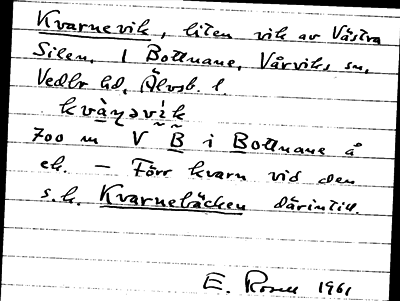 Kvarnevik, liten vik av Västra
Silen, I Bottnane, Vårviks sn,
Vedbo hd, Älvsb. l.
kvàɳəvìk
700 m V B i Bottnane å
ek. — Förr kvarn vid den
s.k. Kvarnebäcken därintill.
E. Rosell 1961